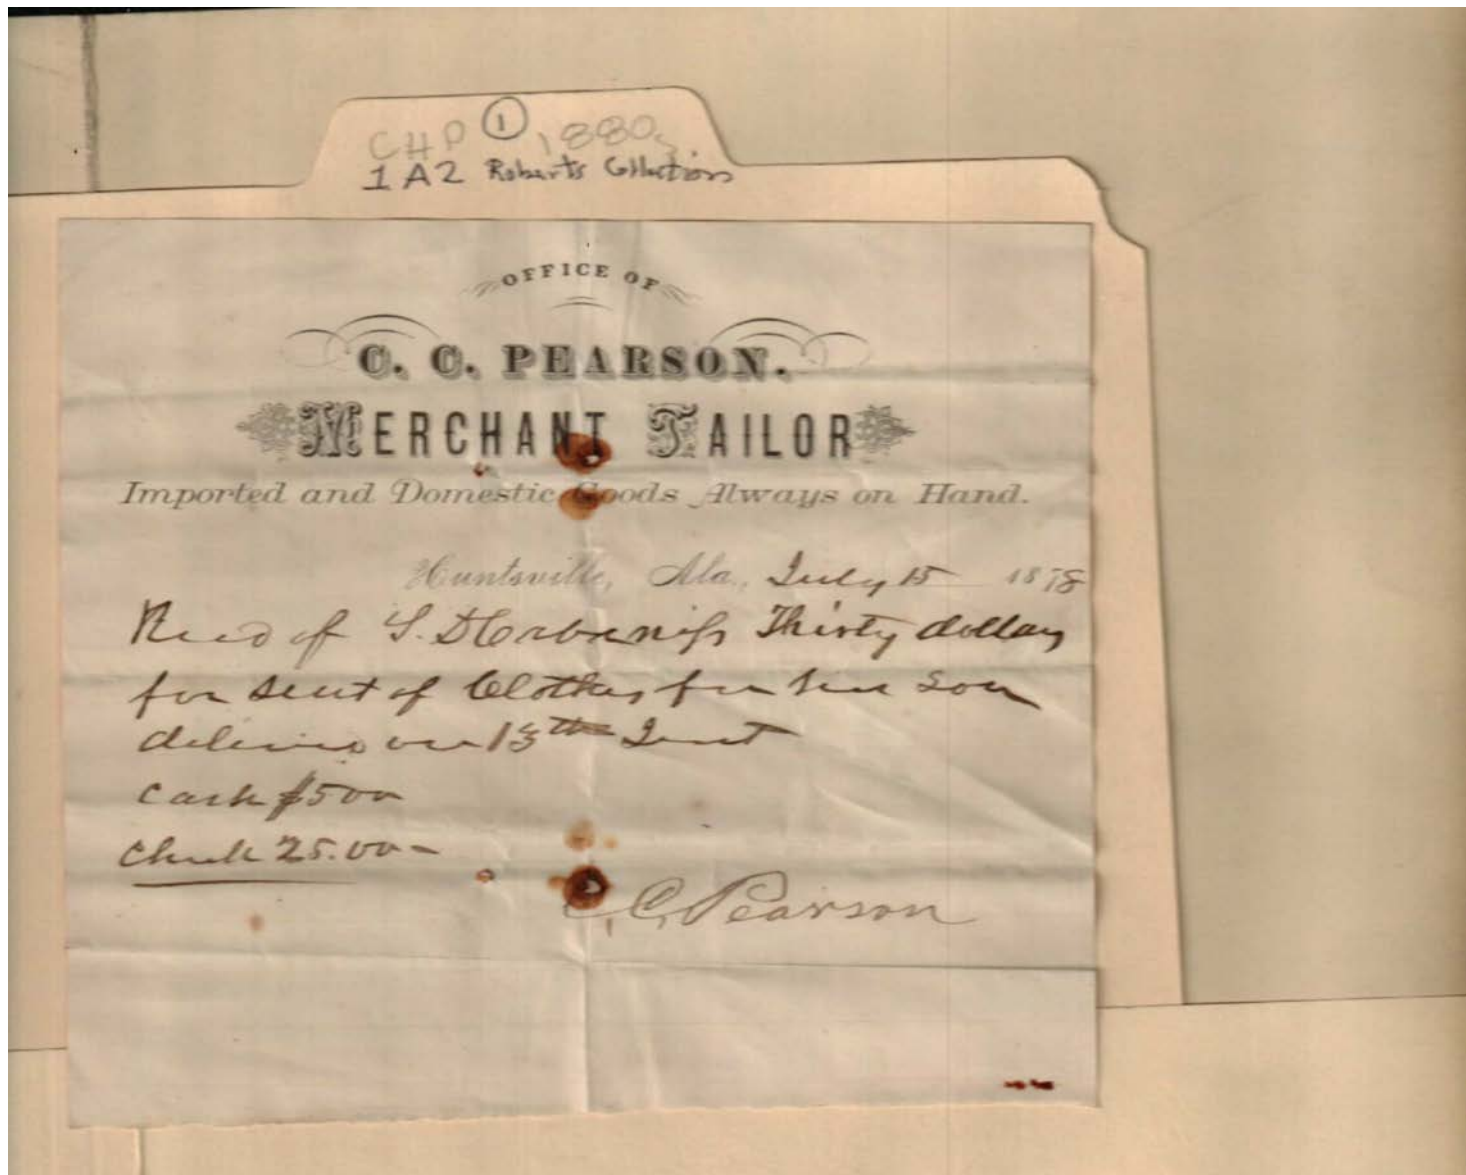 CHP ① 1880s
1A2 Roberts Collection
OFFICE OF
C. C. PEARSON.
MERCHANT TAILOR
Imported and Domestic Goods Always on Hand.
Huntsville, Ala., July 15 1878
Recd of S. D Cabaniss Thirty dollars
for suit of Clothes for his Son
delivered on 13th Inst
Cash $5 00
Check 25.00 -
C C Pearson